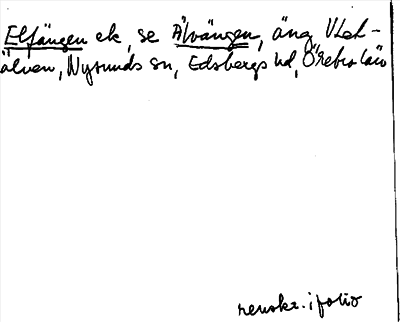 Elfängen ek, se Älvängen, äng V Let-
älven, Nysunds sn, Edsbergs hd, Örebro län
renskr. i folio